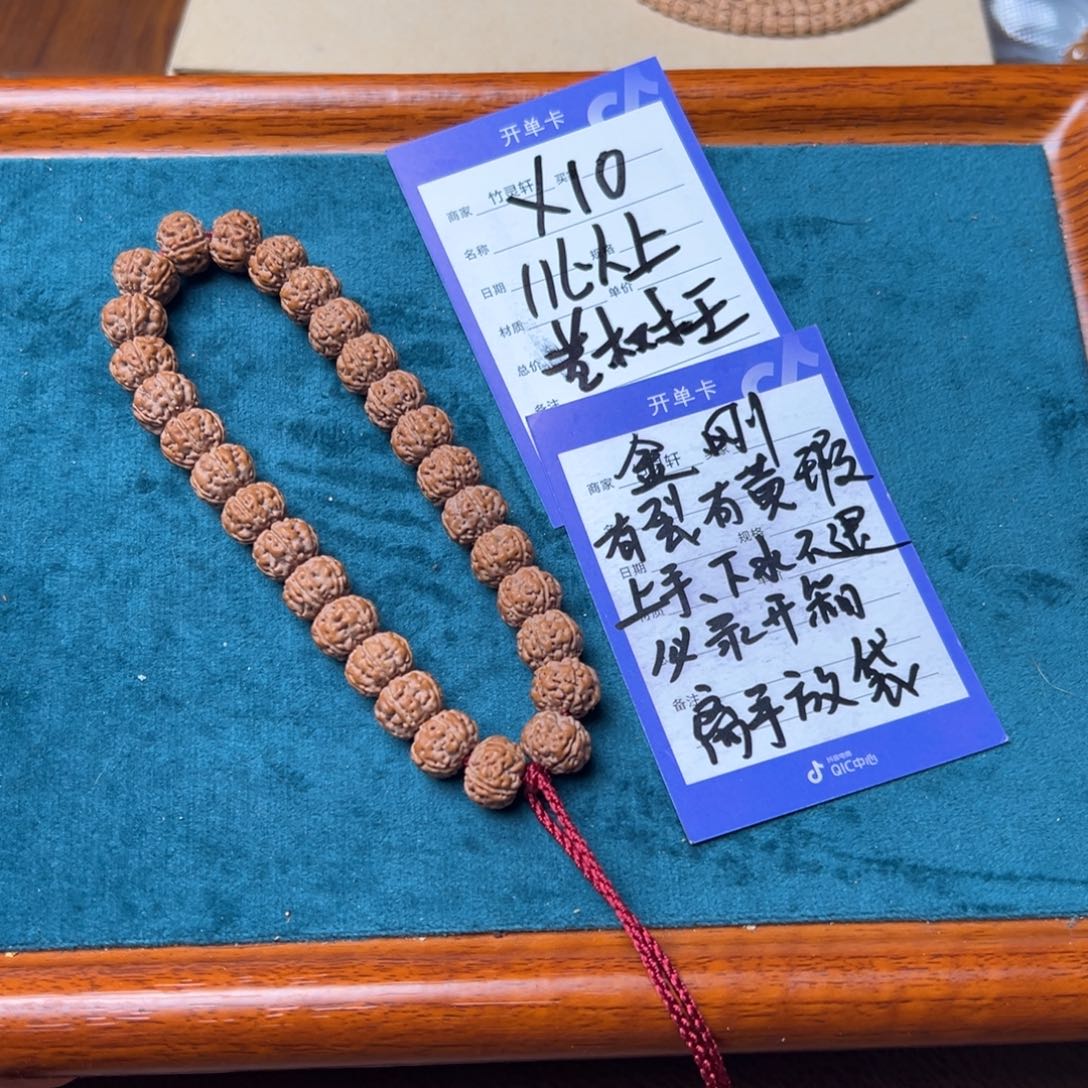 开单卡
商家 竹灵轩 买
X10
名称
规格
日期
单价
材质
总价
备注
开单卡
金刚
商家 轩
有裂有黄瑕
规格
日期
上手、下水不退
仅录开箱
备注
离手放袋
抖音电商
QIC中心